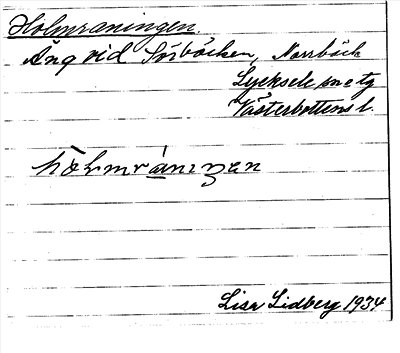 Holmraningen.
Äng vid Sörbäcken, Norrbäck
Lycksele sn o tg
Västerbottens l.
Lisa Lidberg 1934